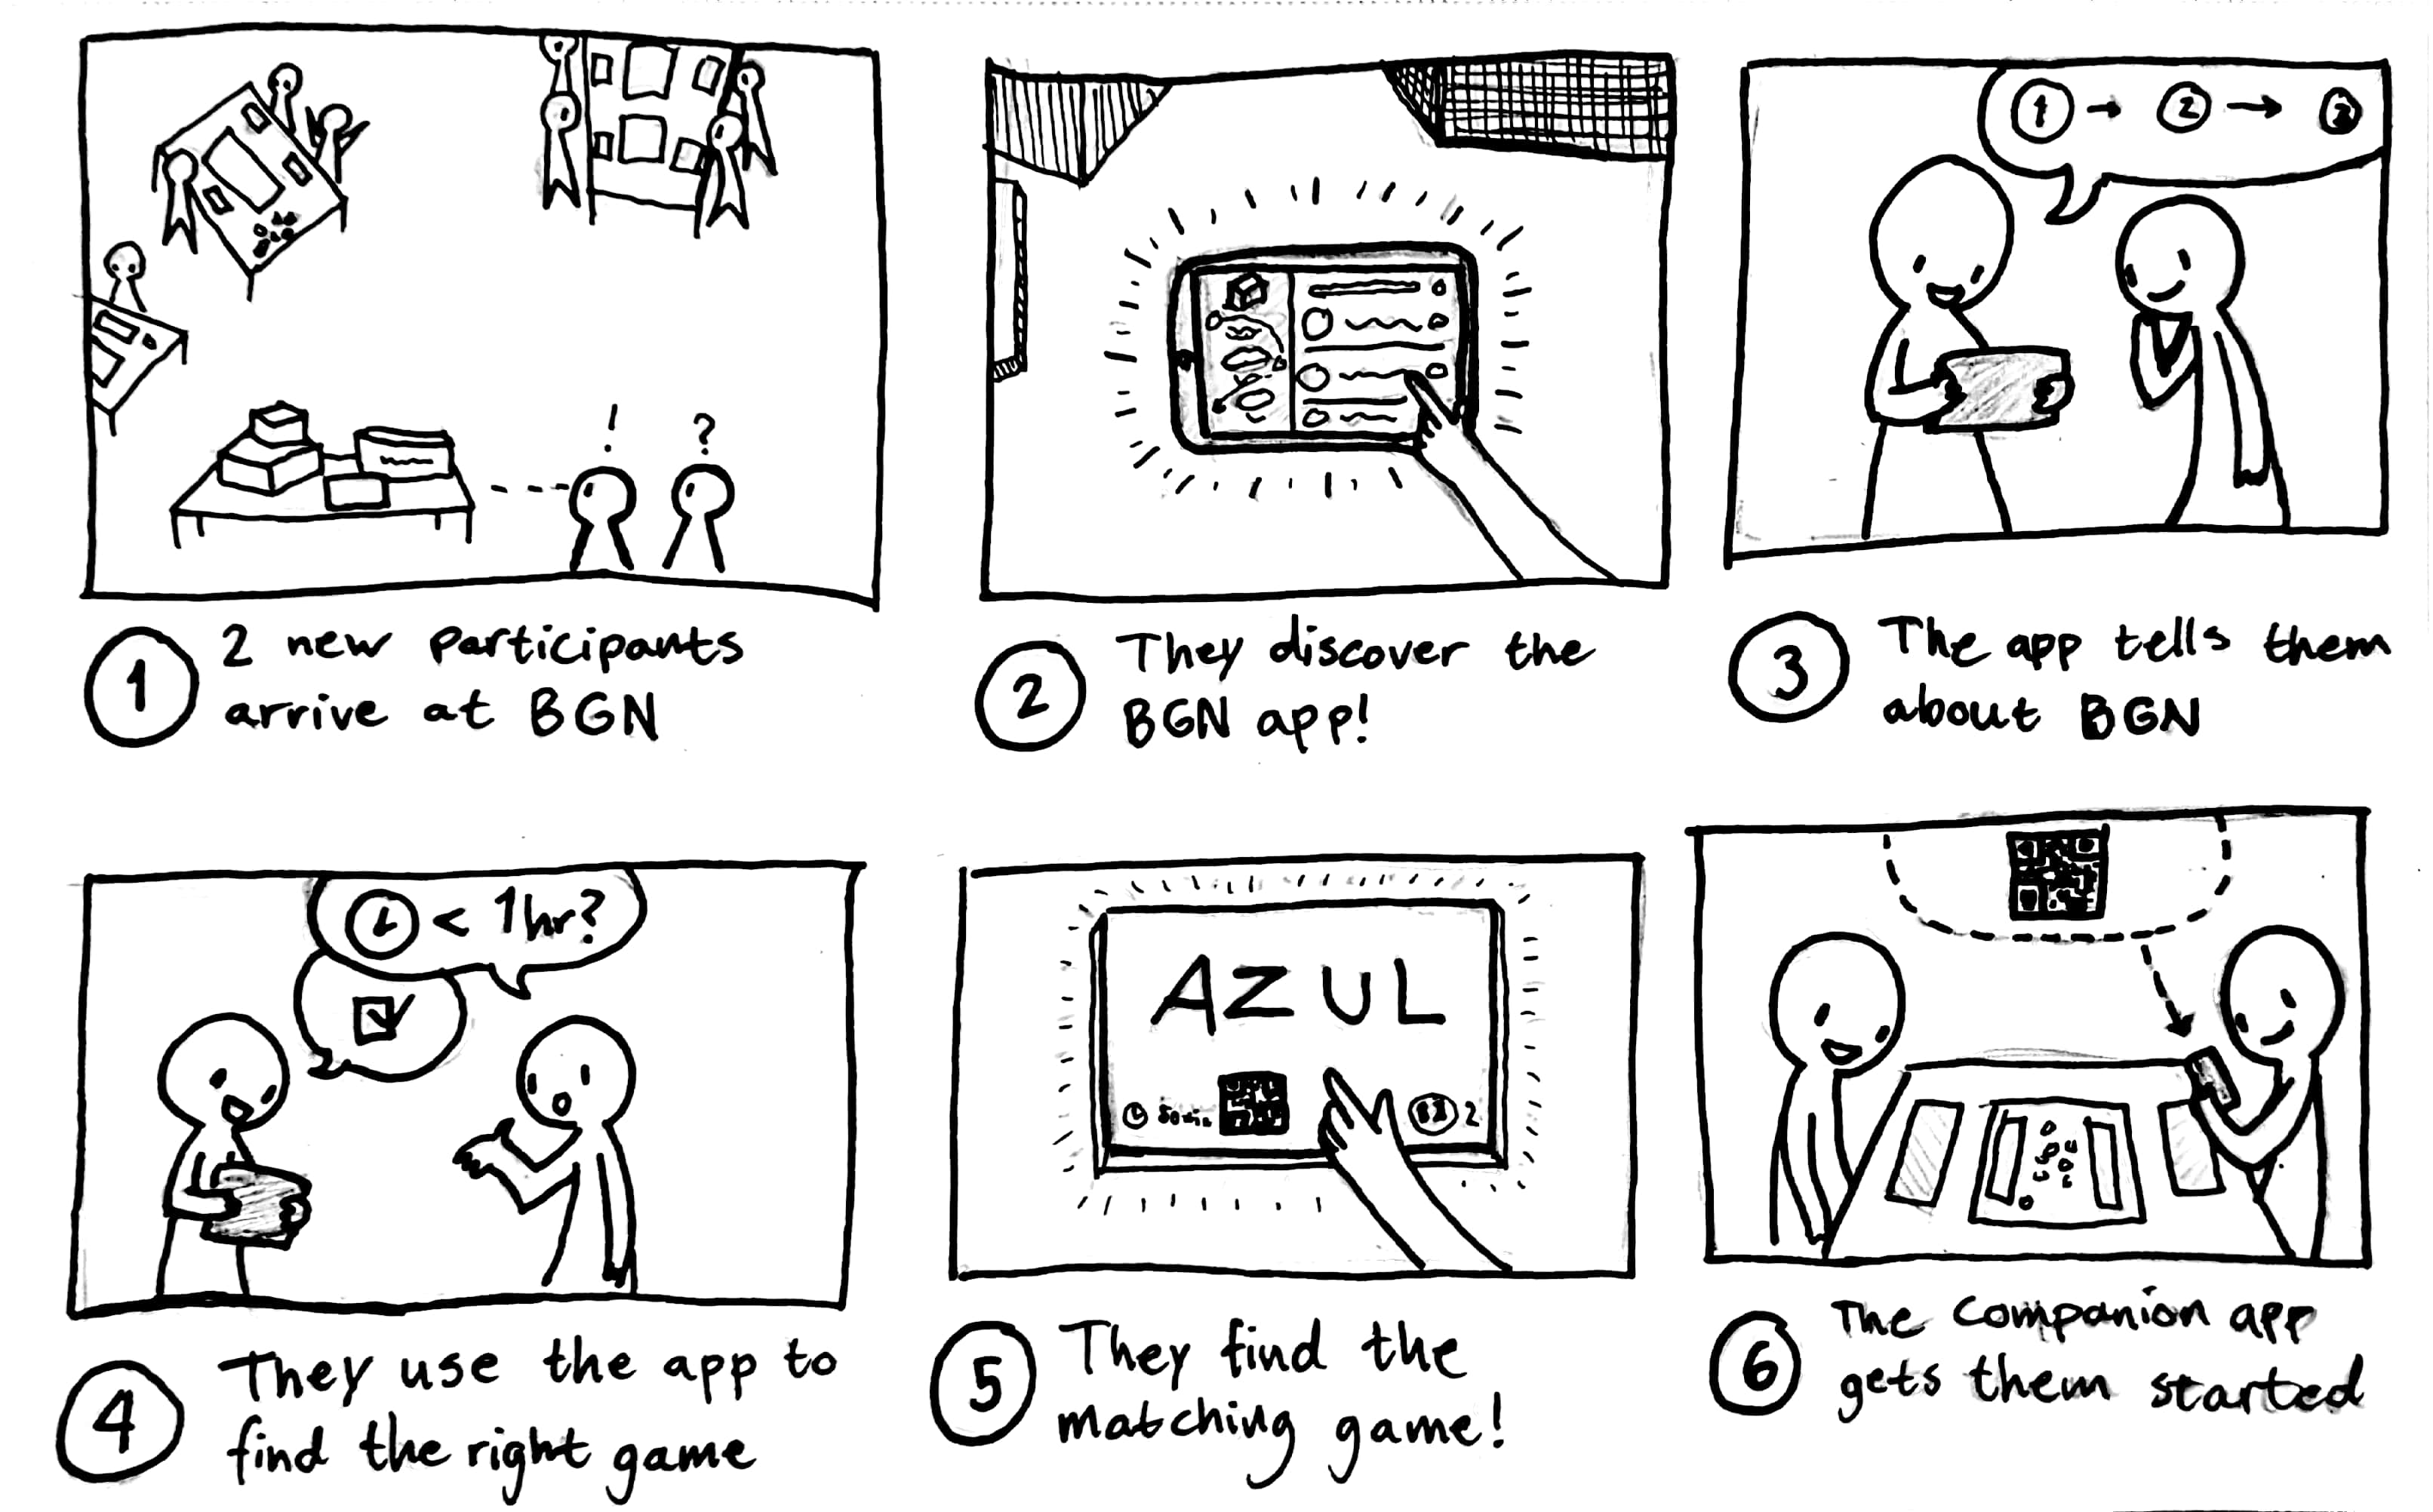 ! ?
1 → 2 →
1 2 new participants
arrive at BGN
2 They discover the
BGN app!
3 The app tells them
about BGN
< 1hr?
4 They use the app to
find the right game
AZUL
2
5 They find the
matching game!
6 The companion app
gets them started